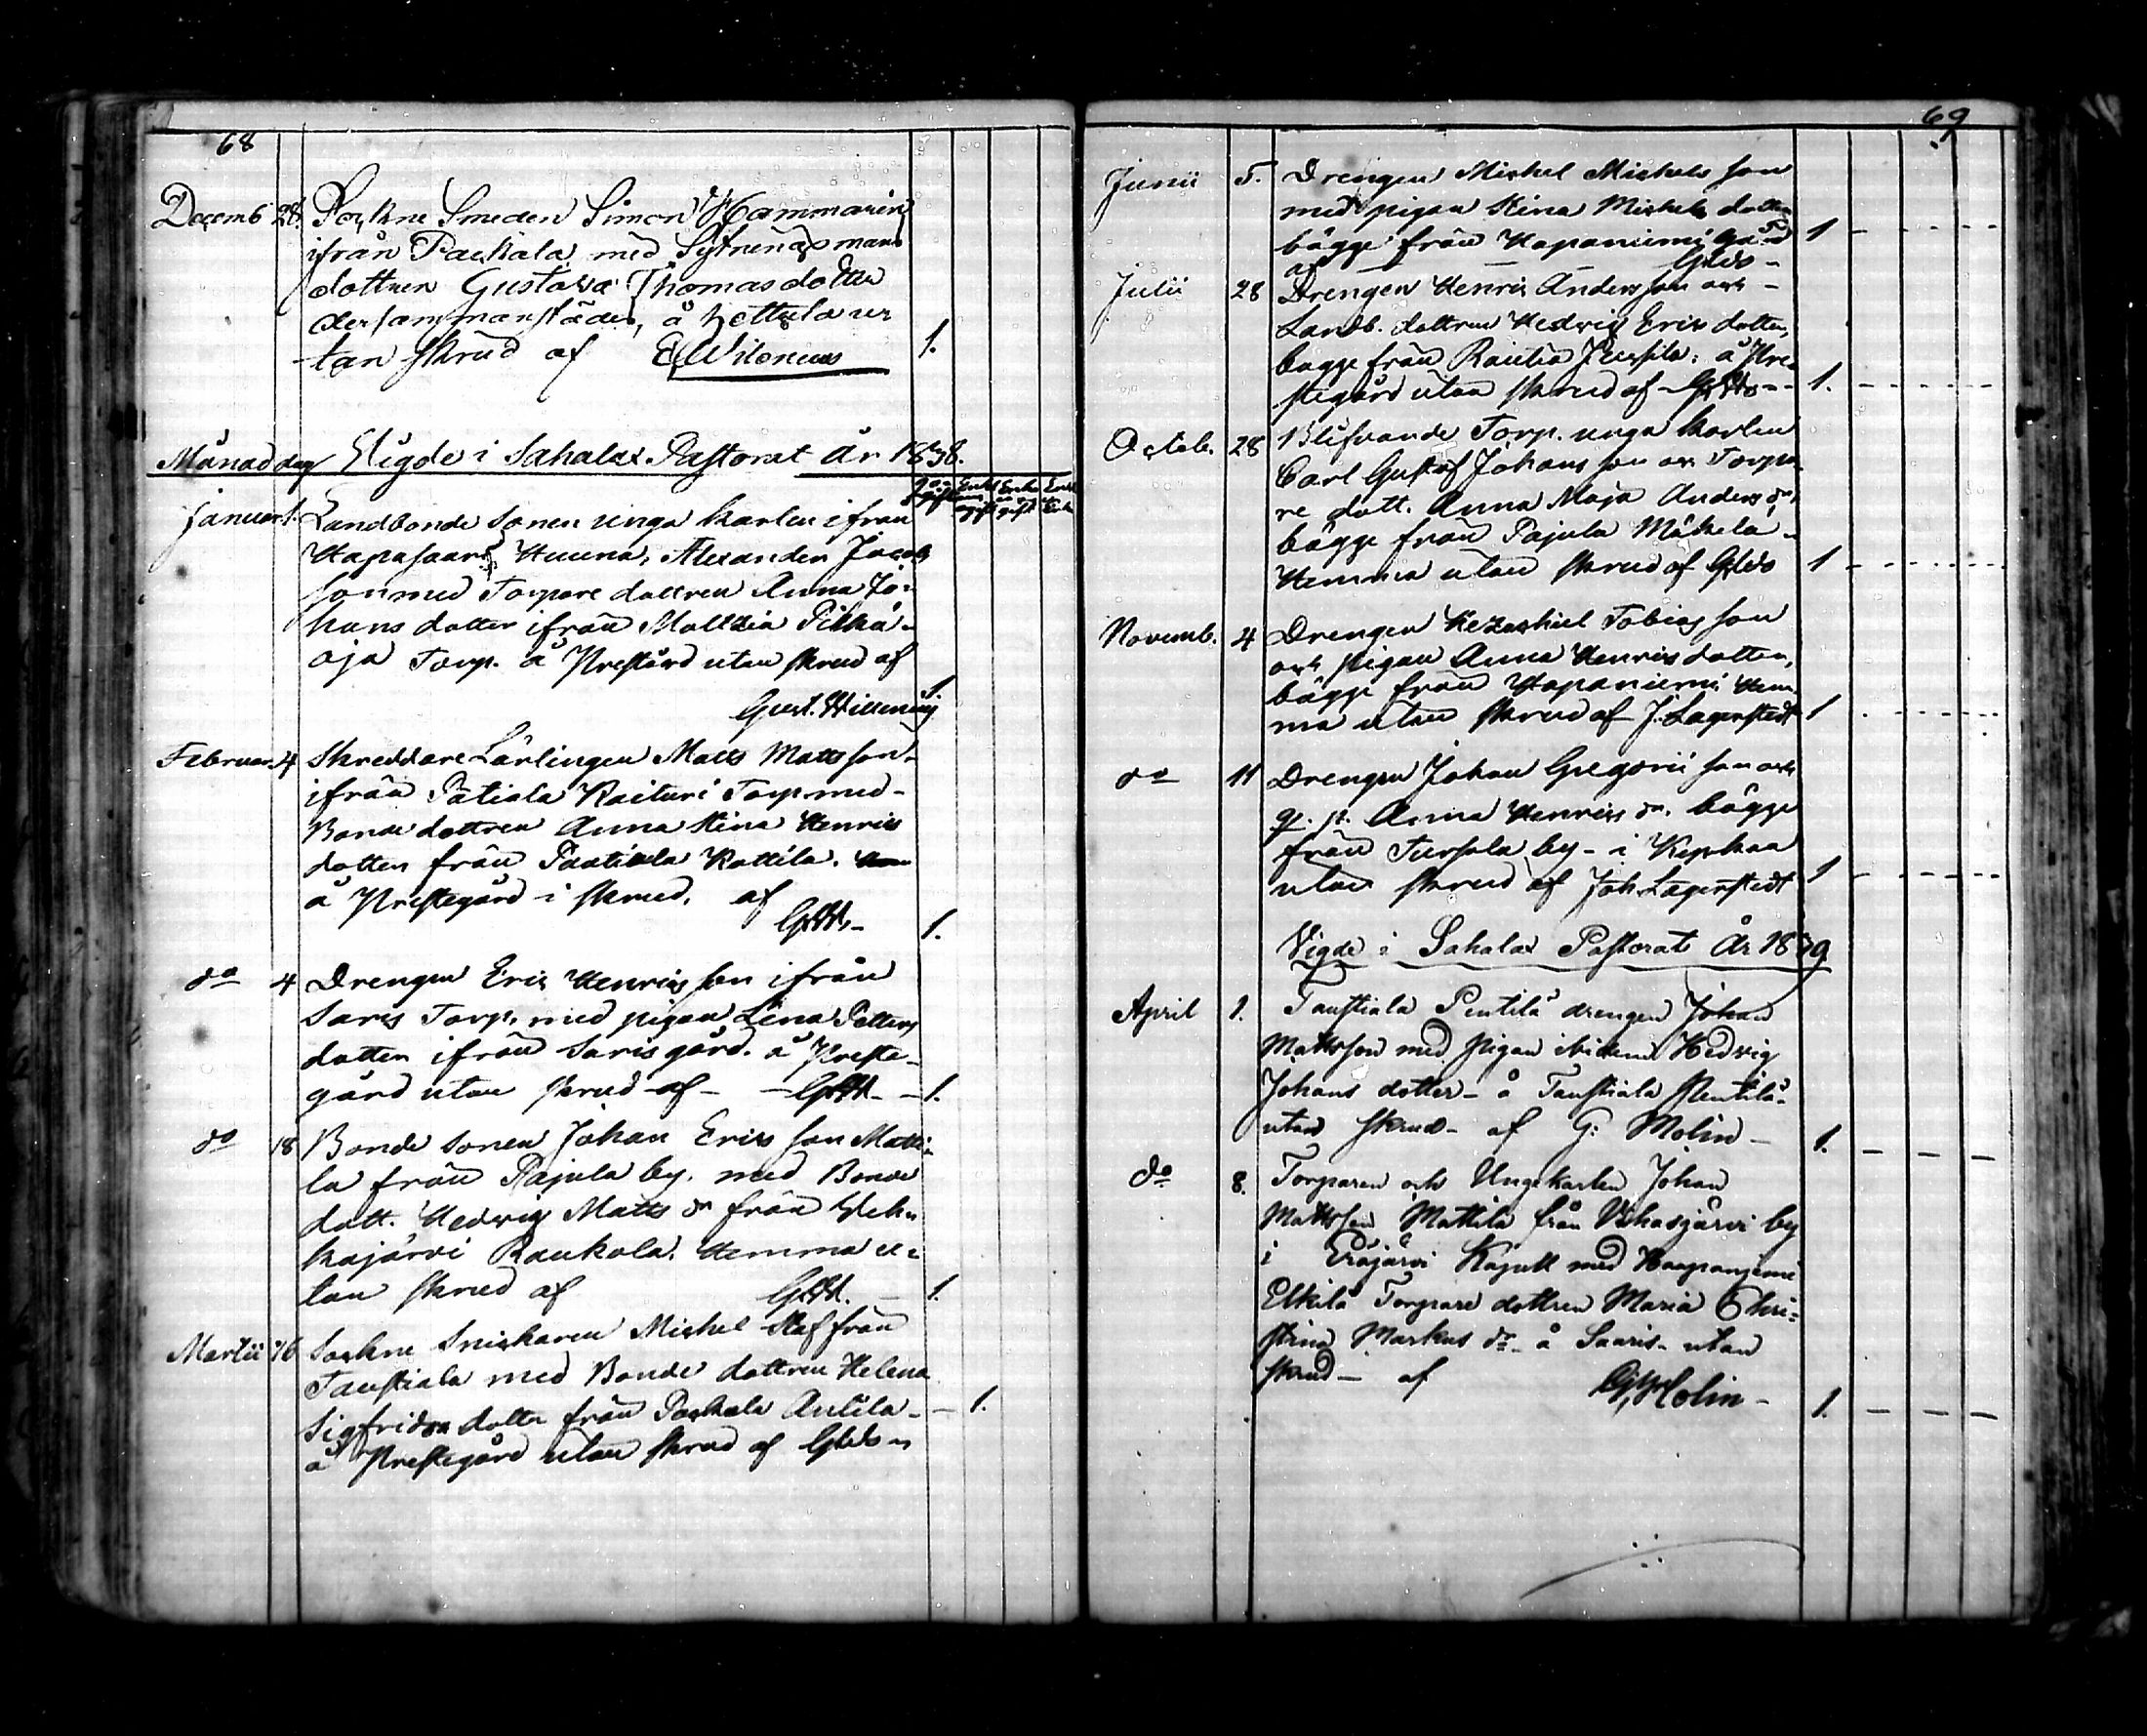 68
Decemb 28. Sockne Smeden Simon Hammarin
ifrån Packala med
dottren Gustava Thomasdotter
dersammanstädes, å u-
tan skrud af E Wilenius 1.
Månad dag Vigde i Sahalax Pastorat år 1838.
Januar 1. Landbonde Sonen unga karlen ifrån
Hapasaari Alexander Jacobs
son med Torpare dottren Anna Jo-
hans dotter ifrån Moltzia Pitkä-
oja Torp. å Prestgård utan skrud af
Gust. 1.
Februar. 4 Skreddare Lärlingen Matts Matts son
ifrån Torp med
Bonde dottren Anna Stina Henrics
dotter från Rottila.
å Prestegård i skrud. af
1.
do 4 Drengen Eric Henrics son ifrån
Saris Torp. med pigan Lena Petters
dotter ifrån Saris gård. å Preste-
gård utan skrud af 1.
do 18 Bonde sonen Johan Erics son Matti-
la från Pajula by. med Bonde
dott. Hedvig Matts dr från Vehu
kajärvi Raukola. Hemma u-
tan skrud af 1.
Martii 16 Sockne Snickaren Michel Staf från
Taustiala med Bonde dottren Helena
Sigfrids dotter från Packala Antila
å Prestegård utan skrud af 1.
69
Junii 5. Drengen Michel Michels son
med pigan Stina Michels dotter
bägge från Hapaniemi gård 1
af
Julii 28 Drengen Henric Anders son och
Landb. dottren Hedvig Erics dotter,
bägge från Rautia å Pre
stegård utan skrud af 1.
Octob. 28 Blifvande Torp. unga karlen
Carl Gustaf Johans son och Torpa
re dott. Anna Maja Anders dr
bägge från Pajula Mäkelä
Hemma utan skrud af 1
Novemb. 4 Drengen Hezechiel Tobias son
och pigan Anna Henrics dotter,
bägge från Hapaniemi. Hem-
ma utan skrud af J. Lagerstedt 1
do 11 Drengen Johan Gregorii son och
Anna Henrics dr. bägge
från Tursola by i
utan skrud af Joh. Lagerstedt 1
Vigde i Sahalax Pastorat År 1839
April 1. Taustiala Pentilä drengen Johan
Mattsson med pigan ibidem Hedvig
Johans dotter å Taustiala Pentilä
utan skrud af G: Molin 1.
do 8. Torparen och Ungkarlen Johan
Mattsson Mattila från Vihasjärvi by
i Eräjärvi Kapell med Haapaniemi
Eskilä Torpare dottren Maria Chri-
stina Markus dr å Saaris utan
skrud af G, Molin 1.